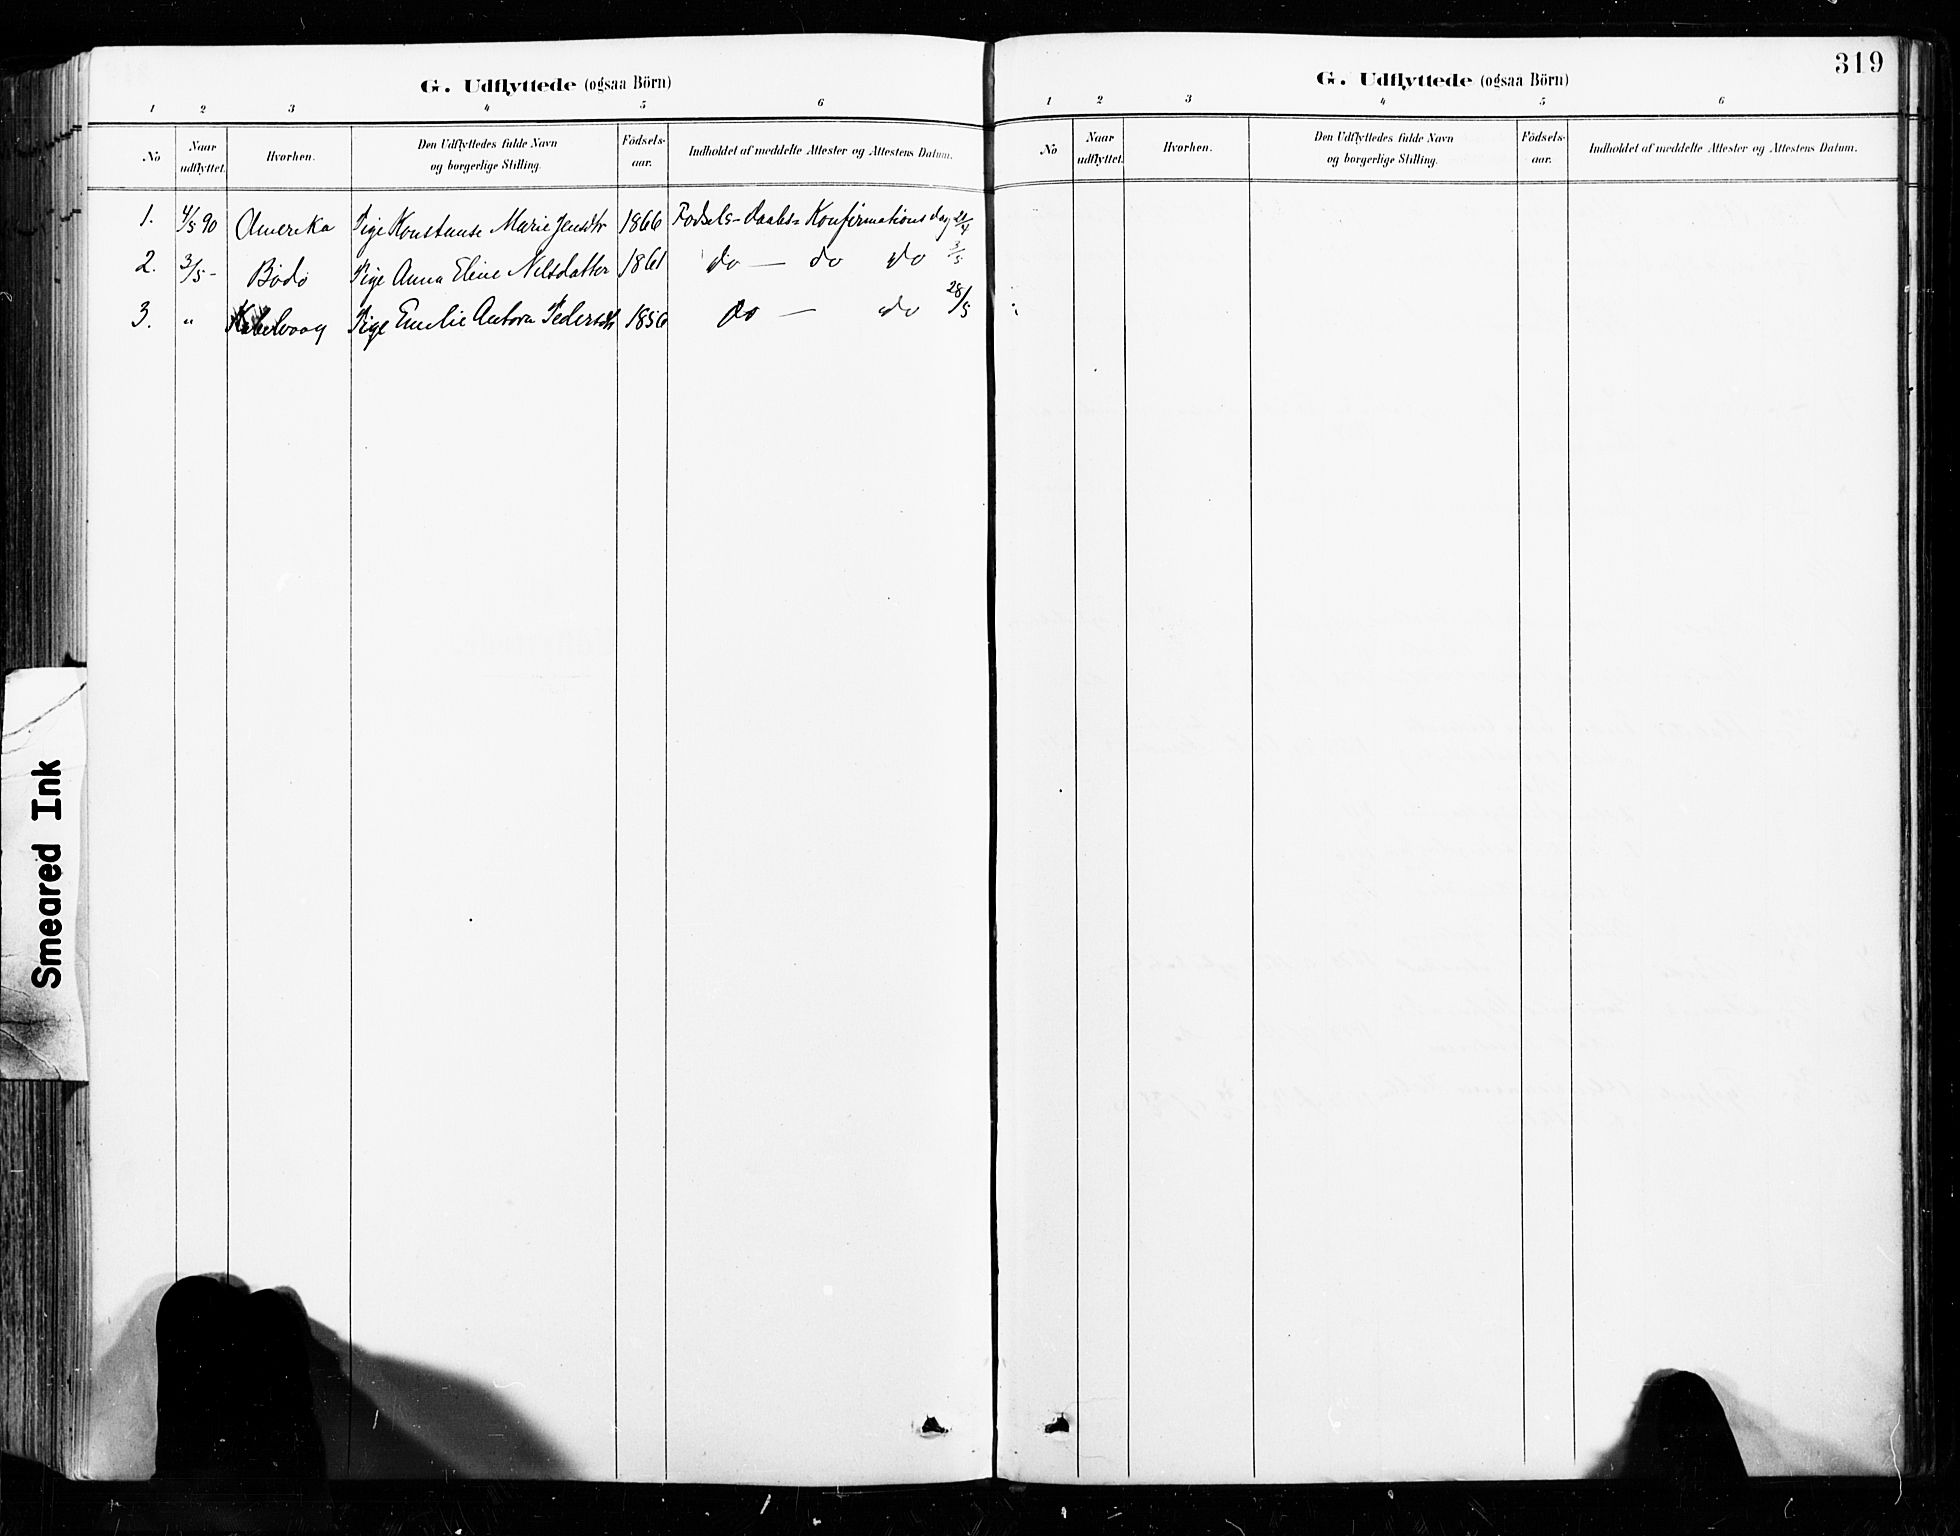 G. Udflyttede (ogsaa Börn)
1 2 3 4 5 6
No Naar udflyttet. Hvorhen. Den Udflyttedes fulde Navn og borgerlige Stilling. Födsels-aar. Indholdet af meddelte Attester og Attestens Datum.
1. 4/5 90 Amerika Pige Konstanse Marie Jensdtr 1866 Fødsels- Daabs- Konfirmationsdag 21/4
2. 3/5 - Bodø Pige Anna Eline Nilsdatter 1861 do — do do 3/5
3. " Kabelvaag Pige Emelie Antora Pedersdtr 1856 do — do 28/5
G. Udflyttede (ogsaa Börn)
319
1 2 3 4 5 6
No Naar udflyttet. Hvorhen. Den Udflyttedes fulde Navn og borgerlige Stilling. Födsels-aar. Indholdet af meddelte Attester og Attestens Datum.
Smeared Ink